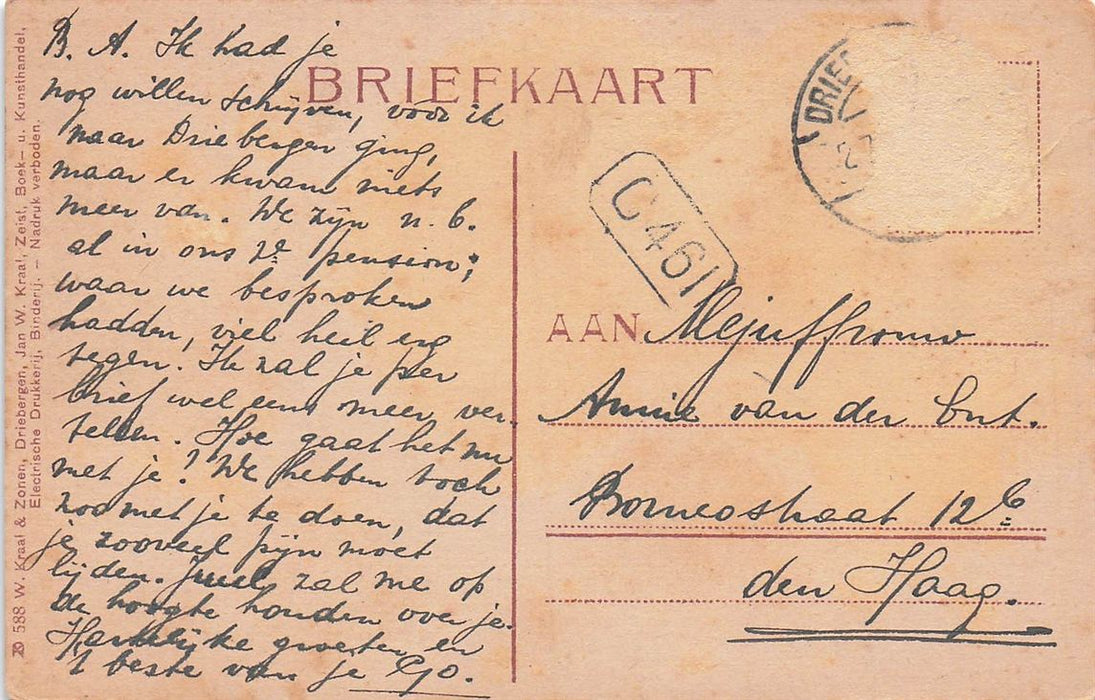 B. A. Ik had je
nog willen schrijven, voor ik
naar Driebergen ging,
maar er kwam niets
meer van. We zijn n. b.
al in ons 2e pension;
waar we besproken
hadden, viel heil erg
tegen. Ik zal je per
brief wel eens meer ver-
tellen. Hoe gaat het nu
met je? We hebben toch
zoo met je te doen, dat
je zooveel pijn moet
lijden. zal me op
de hoogte houden over je.
Hartelijke groeten en
't beste van je Go.
BRIEFKAART
DRIEB
C 461
AAN Mejuffrouw
Annie van der Ent.
Borneostraat 12b
den Haag.
588 W. Kraal & Zonen, Driebergen, Jan W. Kraal, Zeist, Boek- u. Kunsthandel,
Electrische Drukkerij, Binderij. – Nadruk verboden.